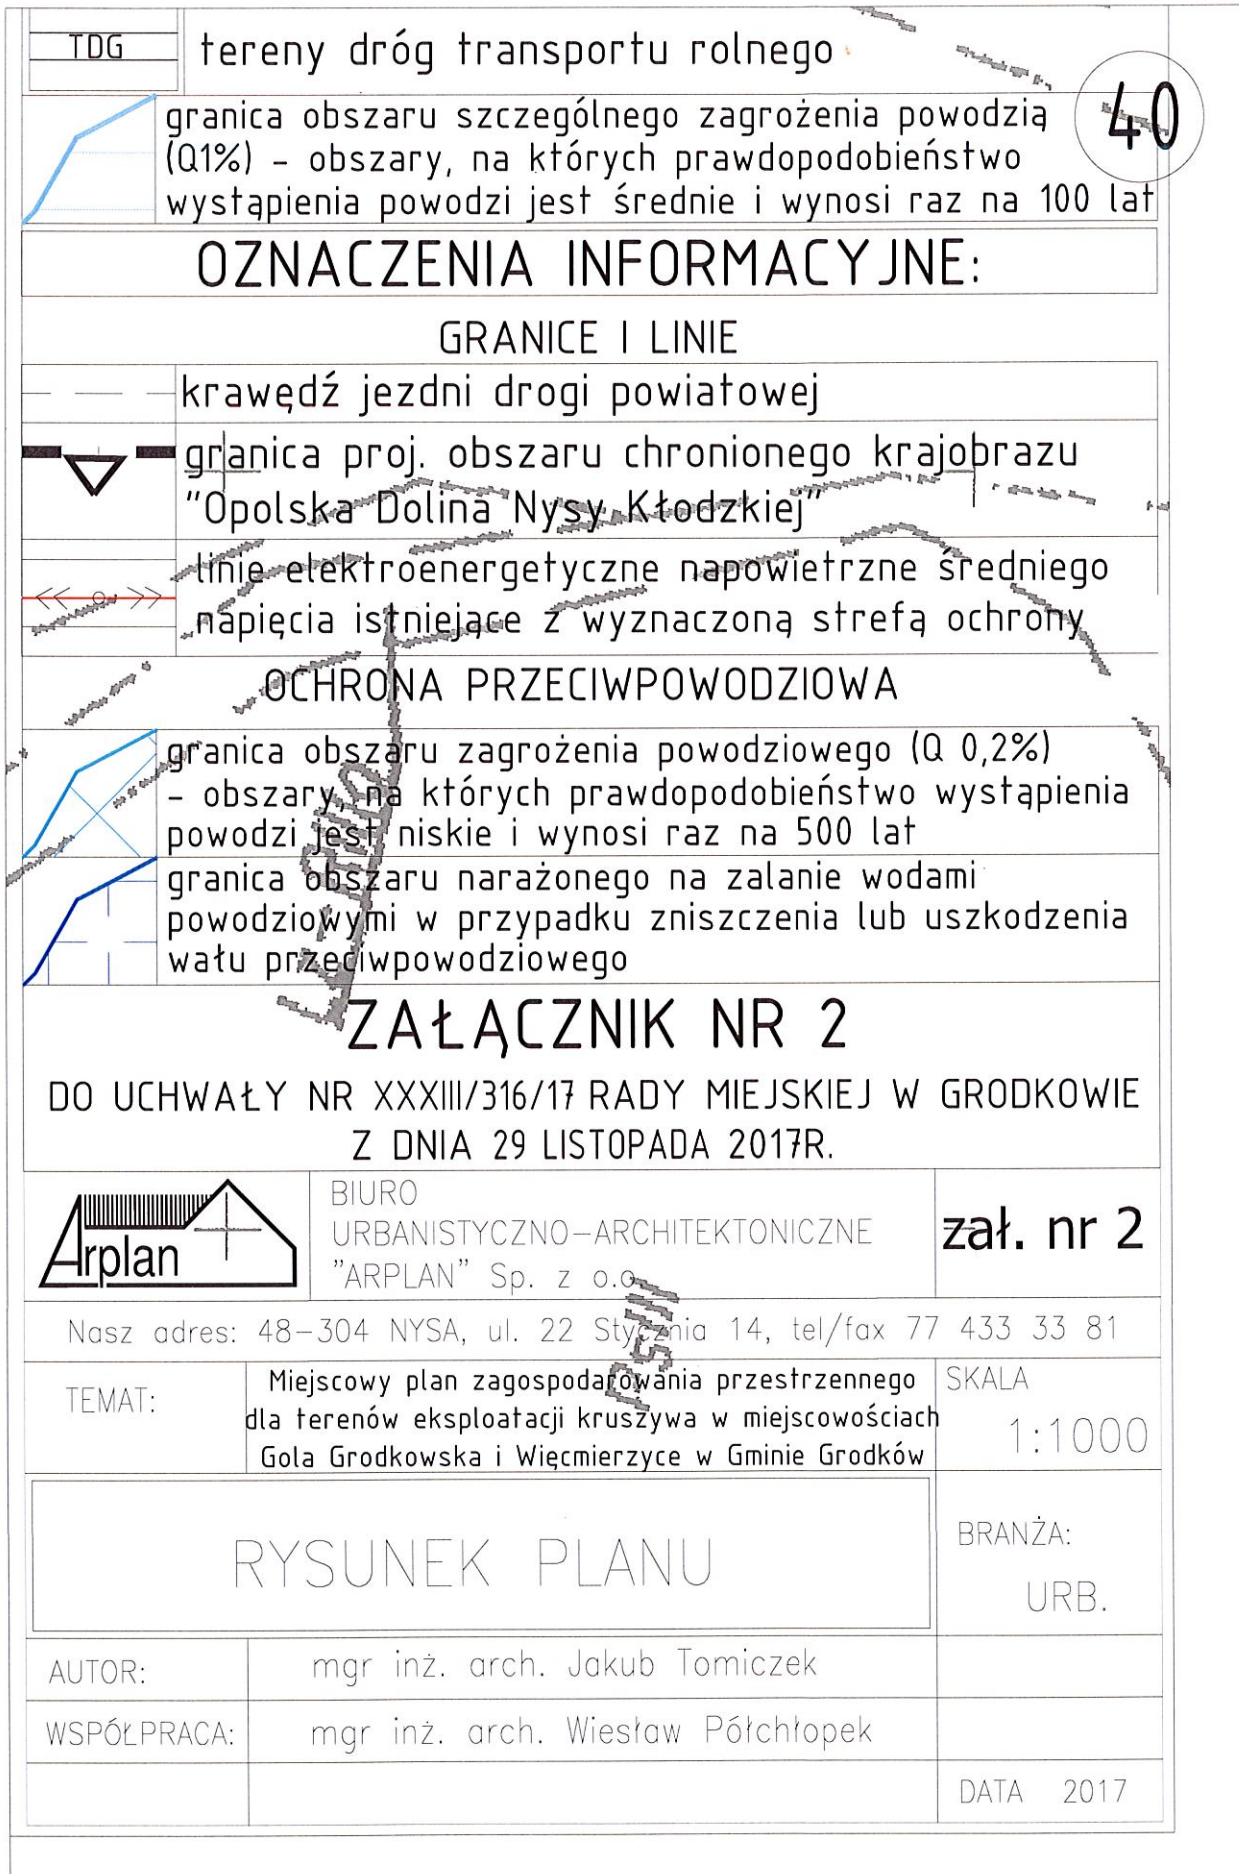 TDG
tereny dróg transportu rolnego
40
granica obszaru szczególnego zagrożenia powodzią
(Q1%) - obszary, na których prawdopodobieństwo
wystąpienia powodzi jest średnie i wynosi raz na 100 lat
OZNACZENIA INFORMACYJNE:
GRANICE I LINIE
krawędź jezdni drogi powiatowej
granica proj. obszaru chronionego krajobrazu
"Opolska Dolina Nysy Kłodzkiej"
linie elektroenergetyczne napowietrzne średniego
napięcia istniejące z wyznaczoną strefą ochrony
OCHRONA PRZECIWPOWODZIOWA
granica obszaru zagrożenia powodziowego (Q 0,2%)
- obszary, na których prawdopodobieństwo wystąpienia
powodzi jest niskie i wynosi raz na 500 lat
granica obszaru narażonego na zalanie wodami
powodziowymi w przypadku zniszczenia lub uszkodzenia
wału przeciwpowodziowego
ZAŁĄCZNIK NR 2
DO UCHWAŁY NR XXXIII/316/17 RADY MIEJSKIEJ W GRODKOWIE
Z DNIA 29 LISTOPADA 2017R.
Arplan
BIURO
URBANISTYCZNO-ARCHITEKTONICZNE
"ARPLAN" Sp. z o.o.
zał. nr 2
Nasz adres: 48-304 NYSA, ul. 22 Stycznia 14, tel/fax 77 433 33 81
TEMAT:
Miejscowy plan zagospodarowania przestrzennego
dla terenów eksploatacji kruszywa w miejscowościach
Gola Grodkowska i Więcmierzyce w Gminie Grodków
SKALA
1:1000
RYSUNEK PLANU
BRANŻA:
URB.
AUTOR:
mgr inż. arch. Jakub Tomiczek
WSPÓŁPRACA:
mgr inż. arch. Wiesław Półchłopek
DATA 2017